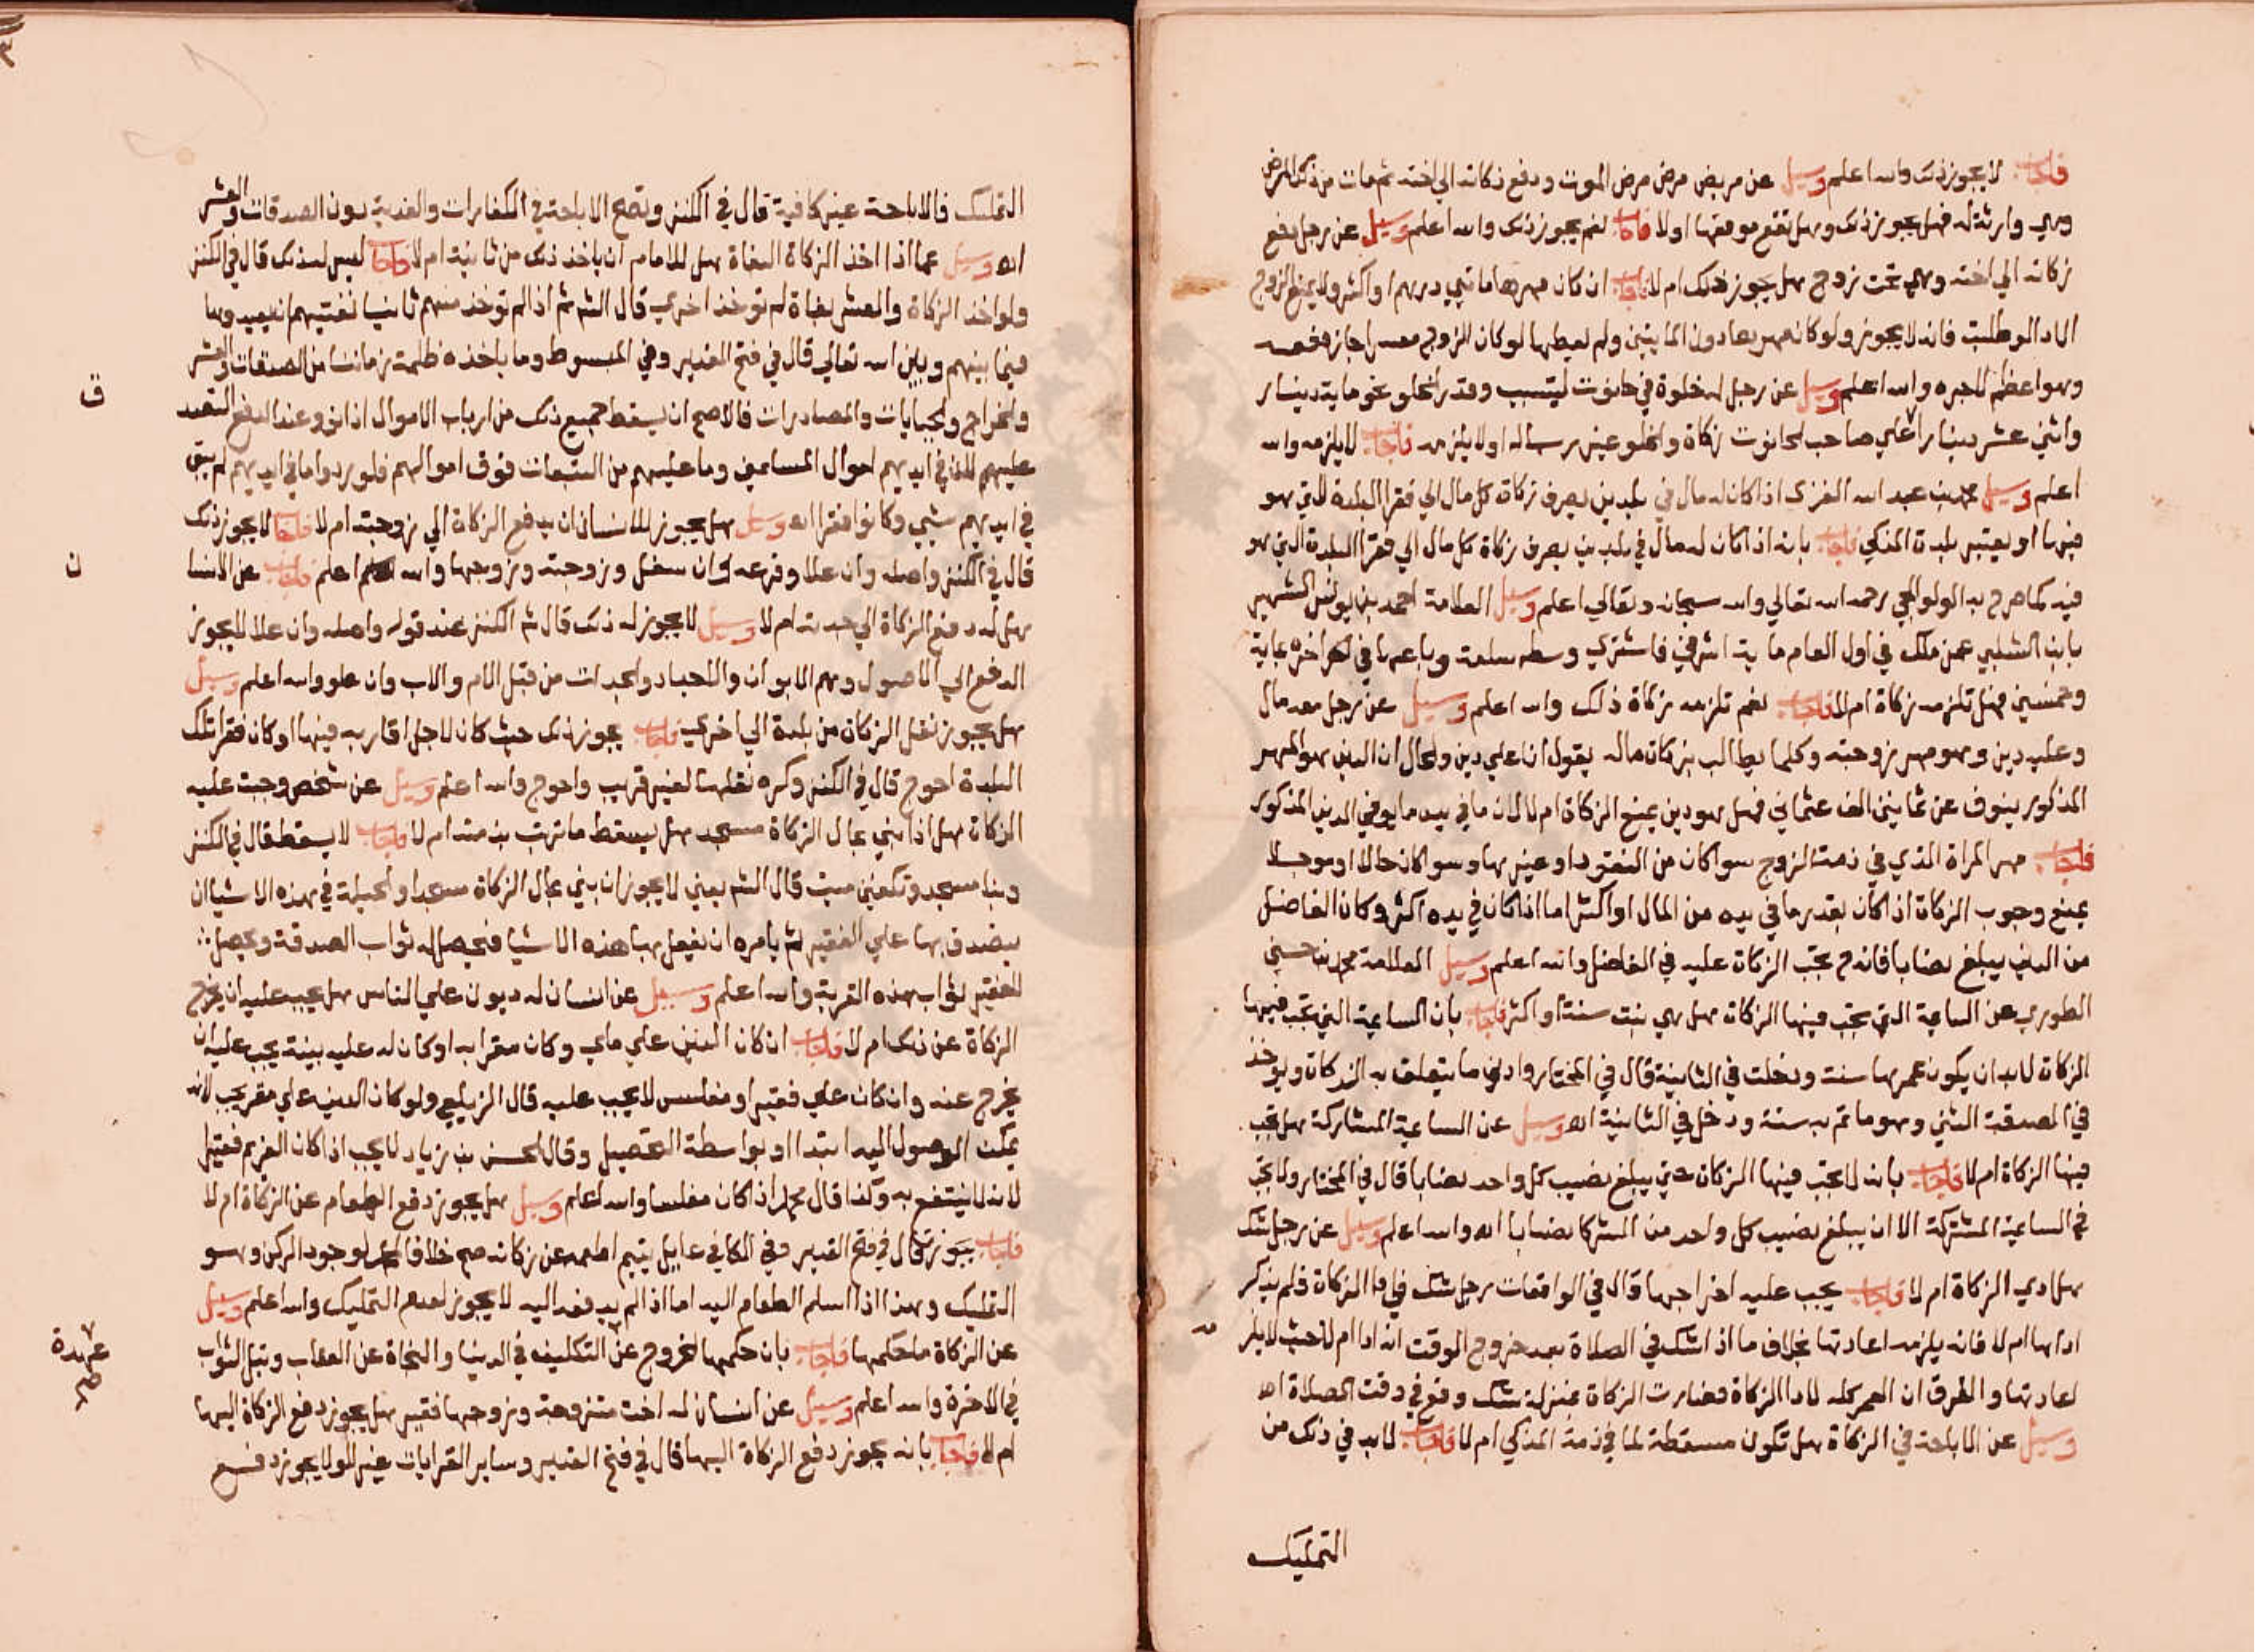 فاجاب لا يجوز ذلك والله اعلم وسيل عن مريض مرض مرض الموت ودفع زكاته الي اخته ثم مات من ذلك المرض
وهي وارثة له فهل يجوز ذلك وهل تقع موقعها اولا فاجاب نعم يجوز ذلك والله اعلم وسيل عن رجل دفع
زكاته الي اخته وهي تحت زوج هل يجوز ذلك ام لا فاجاب ان كان مهرها مايتي درهم او اكثر ولا يمنع الزوج
الادا لو طلبت فانه لا يجوز ولو كان مهرها دون المايتين ولم يعطها لو كان الزوج معسرا جاز
وهو اعظم للاجره والله اعلم وسيل عن رجل له خلوة في حانوت ليتسبب وقدر الخلو نحو ماية دينار
واثني عشر دينارا علي صاحب الحانوت زكاة والخلو عين رساله اولا يلزمه فاجاب لا يلزمه والله
اعلم وسيل محمد بن عبد الله الغزي اذا كان له مال في بلدين يصرف زكاة كل مال الي فقرا البلدة التي هو
فيها او يعتبر بلدة المزكي فاجاب بانه اذا كان له مال في بلدين يصرف زكاة كل مال الي فقرا البلدة التي هو
فيه كما صرح به الولوالجي رحمه الله تعالي والله سبحانه وتعالي اعلم وسيل العلامة احمد بن يونس الشهير
بابن الشلبي عمن ملك في اول العام ماية اشرفي فاشتري وسطه سلعة وباعها في اخره بماية
وخمسين فهل تلزمه زكاة ام لا فاجاب نعم تلزمه زكاة ذلك والله اعلم وسيل عن رجل معه مال
وعليه دين وهو مهر زوجته وكلما يطالب بزكاة ماله يقول انا علي دين والحال ان الدين هو المهر
المذكور ينوف عن ثمانين الف عثماني فهل هو دين يمنع الزكاة ام لا لان ما في يده ما يوفي الدين المذكور
فاجاب مهر المراة الذي في ذمة الزوج سوا كان من النقود او غيرها وسوا كان حالا او موجلا
يمنع وجوب الزكاة اذا كان بقدر ما في يده من المال او اكثر اما اذا كان في يده اكثر وكان الفاضل
من الدين يبلغ نصابا فانه تجب الزكاة عليه في الفاضل والله اعلم وسيل العلامة محمد بن حسين
الطوري عن السايمة التي تجب فيها الزكاة هل هي بنت سنة او اكثر فاجاب بان السايمة التي تجب فيها
الزكاة لا بد ان يكون عمرها سنة ودخلت في الثانية قال في المختار وادني ما يتعلق به الزكاة ويوخذ
في الصدقة الثني وهو ما تم به سنة ودخل في الثانية اه وسيل عن السايمة المشتركة هل تجب
فيها الزكاة ام لا فاجاب بانه لا تجب فيها الزكاة حتي يبلغ نصيب كل واحد نصابا قال في المختار ولا تجب
في السايمة المشتركة الا ان يبلغ نصيب كل واحد من الشركا نصابا اه والله اعلم وسيل عن رجل شك
هل ادي الزكاة ام لا فاجاب يجب عليه اخراجها قال في الواقعات رجل شك في ادا الزكاة فلم يذكر
اداها ام لا فانه يلزمه اعادتها بخلاف ما اذا شك في الصلاة بعد خروج الوقت انه ادا ام لا حيث لا يلزم
اعادتها والفرق ان العمر كله لادا الزكاة فصارت الزكاة بمنزلة شك وقع في وقت الصلاة اه
وسيل عن الاباحة في الزكاة هل تكون مسقطة لما في ذمة المزكي ام لا فاجاب لا بد في ذلك من
التمليك
التمليك فالاباحة غير كافية قال في الكنز وتصح الاباحة في الكفارات والفدية دون الصدقات والعشر
اه وسيل عما اذا اخذ الزكاة البغاة هل للامام ان ياخذ ذلك من ثانية ام لا فاجاب ليس له ذلك قال في الكنز
ولو اخذ الزكاة والعشر بغاة لم توخذ اخري قال الش ثم اذا لم توخذ منهم ثانيا نفتيهم ان يعيدوها
فيما بينهم وبين الله تعالي قال في فتح القدير وفي المبسوط وما ياخذه ظلمة زماننا من الصدقات والعشر
والخراج والجبايات والمصادرات فالاصح ان يسقط جميع ذلك من ارباب الاموال اذا نووا عند الدفع التصدق
عليهم لان ما في ايديهم اموال المسلمين وما عليهم من التبعات فوق اموالهم فلو ردوا ما في ايديهم لم يبق
في ايديهم شيي وكانوا فقرا اه وسيل هل يجوز للانسان ان يدفع الزكاة الي زوجته ام لا فاجاب لا يجوز ذلك
قال في الكنز واصله وان علا وفرعه وان سفل وزوجته وزوجها والله اعلم فاجاب عن الانسا
هل له دفع الزكاة الي جدته ام لا وسيل لا يجوز له ذلك قال ش الكنز عند قوله واصله وان علا لا يجوز
الدفع الي الاصول وهم الابوان والاجداد والجدات من قبل الام والاب وان علو والله اعلم وسيل
هل يجوز نقل الزكاة من بلدة الي اخري فاجاب يجوز ذلك حيث كان لاجل اقاربه فيها او كان فقرا تلك
البلدة احوج قال في الكنز وكره نقلها لغير قريب واحوج والله اعلم وسيل عن شخص وجبت عليه
الزكاة هل اذا بني بمال الزكاة مسجد هل يسقط ما ترتب بذمته ام لا فاجاب لا يسقط قال في الكنز
وبنا مسجد وتكفين ميت قال الش يعني لا يجوز ان يبني بمال الزكاة مسجدا والحيلة في هذه الاشيا ان
يتصدق بها علي الفقير ثم يامره ان يفعل بها هذه الاشيا فيحصل له ثواب الصدقة ويحصل
للفقير ثواب هذه القربة والله اعلم وسيل عن انسان له ديون علي الناس هل يجب عليه ان يخرج
الزكاة عن ذلك ام لا فاجاب ان كان الدين علي ملي وكان مقرا به او كان له عليه بينة يجب عليه ان
يخرج عنه وان كان علي فقير او مفلس لا يجب عليه قال الزيلعي ولو كان الدين علي مقر يجب لانه
يمكنه الوصول اليه ابتدا او بواسطة التحصيل وقال الحسن بن زياد لا يجب اذا كان الغريم فقيرا
لانه لا ينتفع به وكذا قال محمد اذا كان مفلسا والله اعلم وسيل هل يجوز دفع الطعام عن الزكاة ام لا
فاجاب يجوز قال في فتح القدير وفي الكافي عايل يتيم اطعمه عن زكاته صح خلافا لوجود الركن وهو
التمليك وهذا اذا سلم الطعام اليه اما اذا لم يدفعه اليه لا يجوز لعدم التمليك والله اعلم وسيل
عن الزكاة ما حكمها فاجاب بان حكمها الخروج عن التكليف في الدنيا والنجاة عن العقاب ونيل الثواب
في الاخرة والله اعلم وسيل عن انسان له اخت متزوجة وزوجها فقير هل يجوز دفع الزكاة اليها
ام لا فاجاب بانه يجوز دفع الزكاة اليها قال في فتح القدير وساير القرابات غير الولا يجوز دفع
ق
ن
عهدة
صح